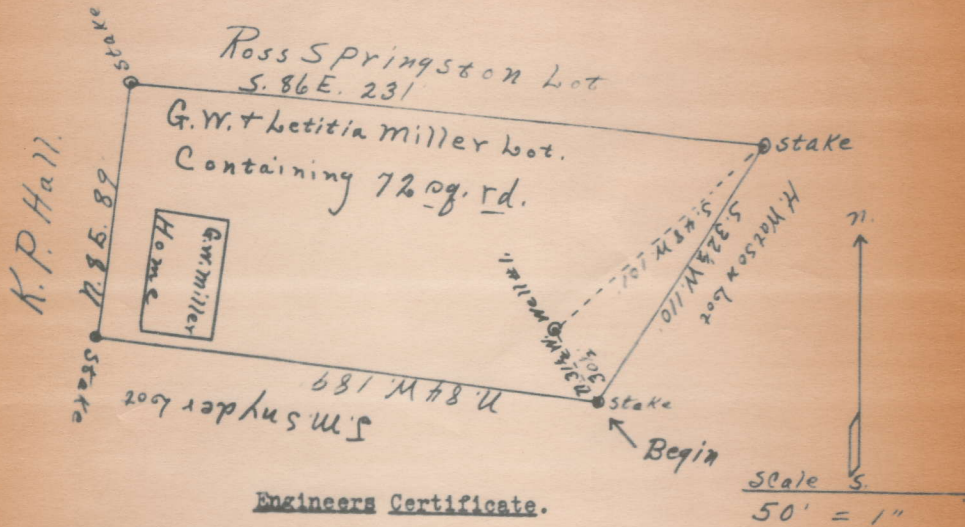 Stake
Ross Springston Lot
S. 86 E. 231
G.W. + Letitia Miller Lot.
Containing 72 sq. rd.
Stake
K.P. Hall.
N 8 E. 89
G.W. Miller
Home
Well #1
S. 48 W. 101'
S. 32½ W. 110'
H. Watson Lot
N. 31½ W.
30½'
Stake
N. 84 W. 189
J.M. Snyder Lot
Stake
Begin
n.
S.
Scale
50' = 1"
Engineers Certificate.